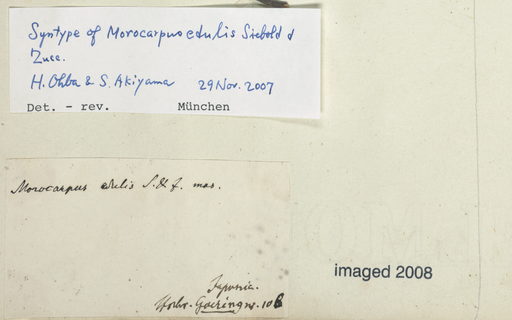 Syntype of Morocarpus edulis Siebold &
Zucc.
H. Ohba & S. Akiyama 29 Nov. 2007
Det. - rev. München
Morocarpus edulis S. & Z. mas.
Japonia.
Herbr. Goering nr. 106
imaged 2008